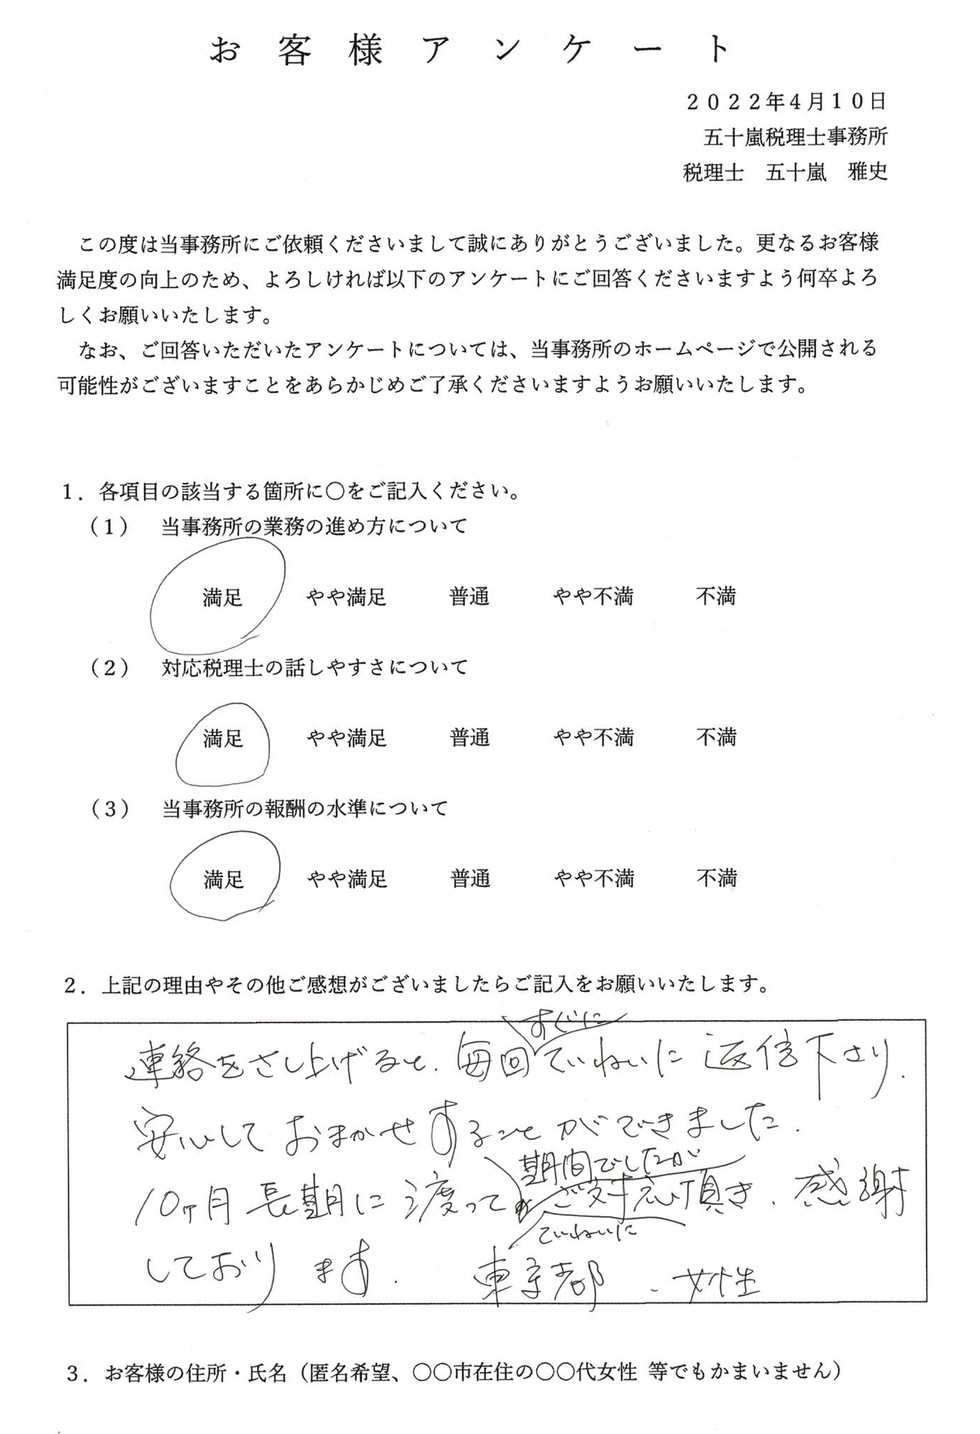 お客様アンケート
２０２２年４月１０日
五十嵐税理士事務所
税理士　五十嵐　雅史
この度は当事務所にご依頼くださいまして誠にありがとうございました。更なるお客様
満足度の向上のため、よろしければ以下のアンケートにご回答くださいますよう何卒よろ
しくお願いいたします。
なお、ご回答いただいたアンケートについては、当事務所のホームページで公開される
可能性がございますことをあらかじめご了承くださいますようお願いいたします。
１．各項目の該当する箇所に〇をご記入ください。
（１）　当事務所の業務の進め方について
満足　やや満足　普通　やや不満　不満
（２）　対応税理士の話しやすさについて
満足　やや満足　普通　やや不満　不満
（３）　当事務所の報酬の水準について
満足　やや満足　普通　やや不満　不満
２．上記の理由やその他ご感想がございましたらご記入をお願いいたします。
すぐに
連絡をさし上げると、毎回ていねいに返信下さり、
安心しておまかせすることができました。
期間でしたが
10ヶ月長期に渡って ご対応頂き、感謝
ていねいに
しております。　東京都、女性
３．お客様の住所・氏名（匿名希望、〇〇市在住の〇〇代女性 等でもかまいません）